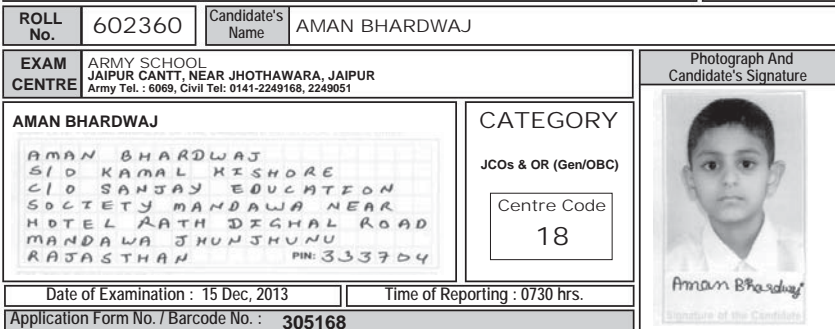 ROLL No. 602360 Candidate's Name AMAN BHARDWAJ
EXAM CENTRE ARMY SCHOOL
JAIPUR CANTT, NEAR JHOTHAWARA, JAIPUR
Army Tel. : 6069, Civil Tel: 0141-2249168, 2249051
Photograph And
Candidate's Signature
AMAN BHARDWAJ
AMAN BHARDWAJ
S/O KAMAL KISHORE
C/O SANJAY EDUCATION
SOCIETY MANDAWA NEAR
HOTEL RATH DIGHAL ROAD
MANDAWA JHUNJHUNU
RAJASTHAN PIN: 333704
CATEGORY
JCOs & OR (Gen/OBC)
Centre Code
18
Aman Bhardwaj
Signature of the Candidate
Date of Examination : 15 Dec, 2013 Time of Reporting : 0730 hrs.
Application Form No. / Barcode No. : 305168